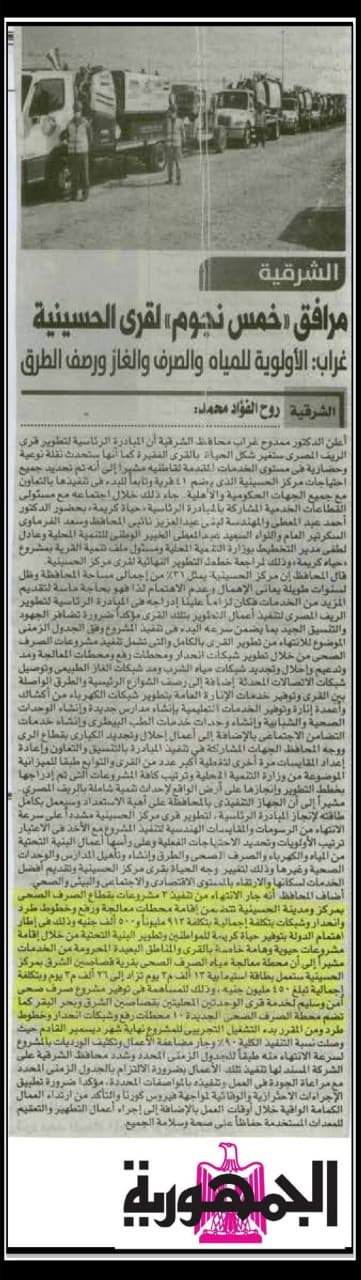 الشرقية
مرافق «خمس نجوم» لقرى الحسينية
غراب: الأولوية للمياه والصرف والغاز ورصف الطرق
الشرقية روح الفؤاد محمد:
أعلن الدكتور ممدوح غراب محافظ الشرقية أن المبادرة الرئاسية لتطوير قرى
الريف المصرى ستغير شكل الحياة بالقرى الفقيرة كما أنها ستحدث نقلة نوعية
وحضارية فى مستوى الخدمات المقدمة لقاطنيه مشيراً إلى أنه تم تحديد جميع
احتياجات مركز الحسينية الذى يضم ٤١ قرية وتابعاً للبدء فى تنفيذها بالتعاون
مع جميع الجهات الحكومية والأهلية.. جاء ذلك خلال اجتماعه مع مسئولى
القطاعات الخدمية المشاركة بالمبادرة الرئاسية، حياة كريمة، بحضور الدكتور
أحمد عبد المعطى والمهندسة لبنى عبدالعزيز نائبى المحافظ وسعد الفرماوى
السكرتير العام واللواء السعيد عبد المعطى الخبير الوطنى للتنمية المحلية وعادل
لطفى مدير التخطيط بوزارة التنمية المحلية ومسئول ملف تنمية القرية بمشروع
«حياة كريمة»، وذلك لمراجعة خطط التطوير النهائية لقرى مركز الحسينية.
قال المحافظ إن مركز الحسينية يمثل ٣١٪ من إجمالى مساحة المحافظة وظل
لسنوات طويلة يعانى الإهمال وعدم الاهتمام لذا فهو بحاجة ماسة لتقديم
المزيد من الخدمات فكان لزاماً علينا إدراجه فى المبادرة الرئاسية لتطوير
الريف المصرى لتنفيذ أعمال التطوير بتلك القرى مؤكداً ضرورة تضافر الجهود
والتنسيق الجيد بما يضمن سرعة البدء فى تنفيذ المشروع وفق الجدول الزمنى
الموضوع للانتهاء من تطوير القرى بالكامل والتى تشمل تنفيذ مشروعات الصرف
الصحى من خلال تطوير شبكات انحدار ومحطات رفع ومحطات المعالجة ومد
وتدعيم وإحلال وتجديد شبكات مياه الشرب ومد شبكات الغاز الطبيعى وتوصيل
شبكات الاتصالات المحدثة إضافة إلى رصف الشوارع الرئيسية والطرق الواصلة
بين القرى وتوفير خدمات الإنارة العامة بتطوير شبكات الكهرباء من أكشاك
وأعمدة إنارة وتوفير الخدمات التعليمية بإنشاء مدارس جديدة وإنشاء الوحدات
الصحية والشبابية وإنشاء وحدات خدمات الطب البيطرى وإنشاء خدمات
التضامن الاجتماعى بالإضافة إلى أعمال إحلال وتجديد الكبارى بقطاع الرى
ووجه المحافظ الجهات المشاركة فى تنفيذ المبادرة بالتنسيق والتعاون وإعادة
إعداد المقايسات مرة أخرى لتغطية أكبر عدد من القرى والتوابع طبقا للميزانية
الموضوعة من وزارة التنمية المحلية وترتيب كافة المشروعات التى تم إدراجها
بخطط التطوير وإنجازها على أرض الواقع لإحداث تنمية شاملة بالريف المصرى.
مشيراً إلى أن الجهاز التنفيذى بالمحافظة على أهبة الاستعداد وسيعمل بكامل
طاقته لإنجاز المبادرة الرئاسية، لتطوير قرى مركز الحسينية مشدداً على سرعة
الانتهاء من الرسومات والمقايسات الهندسية لتنفيذ المشروع مع الأخذ فى الاعتبار
ترتيب الأولويات وتحديد الاحتياجات الفعلية وعلى رأسها أعمال البنية التحتية
من المياه والكهرباء والصرف الصحى والطرق وإنشاء وتأهيل المدارس والوحدات
الصحية وغيرها وذلك لتغيير وجه الحياة بقرى مركز الحسينية وتقديم أفضل
الخدمات لسكانها والارتقاء بالمستوى الاقتصادى والاجتماعى والبيئى والصحى.
أضاف المحافظ أنه جار الانتهاء من تنفيذ ٣ مشروعات بقطاع الصرف الصحى
بمركز ومدينة الحسينية تتضمن إقامة محطات معالجة ورفع وخطوط طرد
وانحدار وشبكات بتكلفة إجمالية بتكلفة ٩١٣ مليوناً و٥٠٠ ألف جنيه وذلك فى إطار
اهتمام الدولة بتوفير حياة كريمة للمواطنين وتطوير البنية التحتية من خلال إقامة
مشروعات حيوية وهامة خاصة بالقرى والمناطق البعيدة المحرومة من الخدمات
مشيراً إلى أن محطة معالجة مياه الصرف الصحى بقرية قصاصين الشرق بمركز
الحسينية ستعمل بطاقة استيعابية ١٣ ألف م٣ يوم تزاد إلى ٢٦ ألف م٣ يوم وبتكلفة
إجمالية تبلغ ٤٥٠ مليون جنيه، وذلك للمساهمة فى توفير مشروع صرف صحى
آمن وسليم لخدمة قرى الوحدتين المحليتين بقصاصين الشرق وبحر البقر كما
تضم محطة الصرف الصحى الجديدة ١٠ محطات رفع وشبكات انحدار وخطوط
طرد ومن المقرر بدء التشغيل التجريبى للمشروع نهاية شهر ديسمبر القادم حيث
وصلت نسبة التنفيذ الكلية ٩٠٪ وجار مضاعفة الأعمال وتكثيف الورديات بالمشروع
لسرعة الانتهاء منه طبقاً للجدول الزمنى المحدد وشدد محافظ الشرقية على
الشركة المسند لها تنفيذ تلك الأعمال بضرورة الالتزام بالجدول الزمنى المحدد
مع مراعاة الجودة فى العمل وتنفيذه بالمواصفات المحددة، مؤكداً ضرورة تطبيق
الإجراءات الاحترازية والوقائية لمواجهة فيروس كورنا والتأكد من ارتداء العمال
الكمامة الواقية خلال أوقات العمل بالإضافة إلى إجراء أعمال التطهير والتعقيم
للمعدات المستخدمة حفاظاً على صحة وسلامة الجميع.
الجمهورية